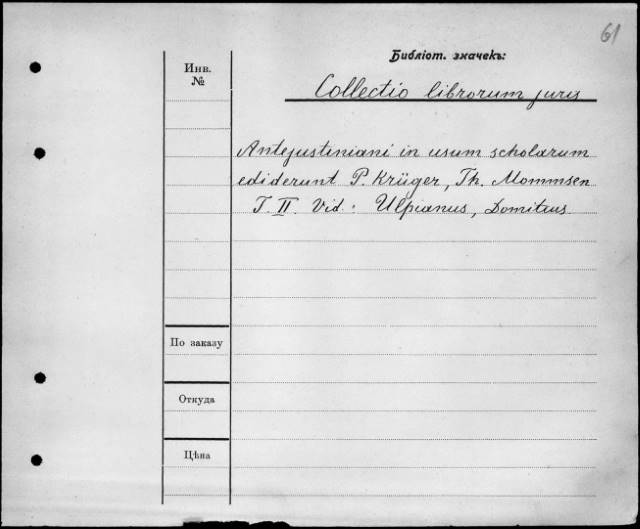 61
Библіот. значекъ:
Инв.
№
Collectio librorum juris
Antejustiniani in usum scholarum
ediderunt P. Krüger, Th. Mommsen
T. II. Vid.: Ulpianus, Domitius
По заказу
Откуда
Цѣна